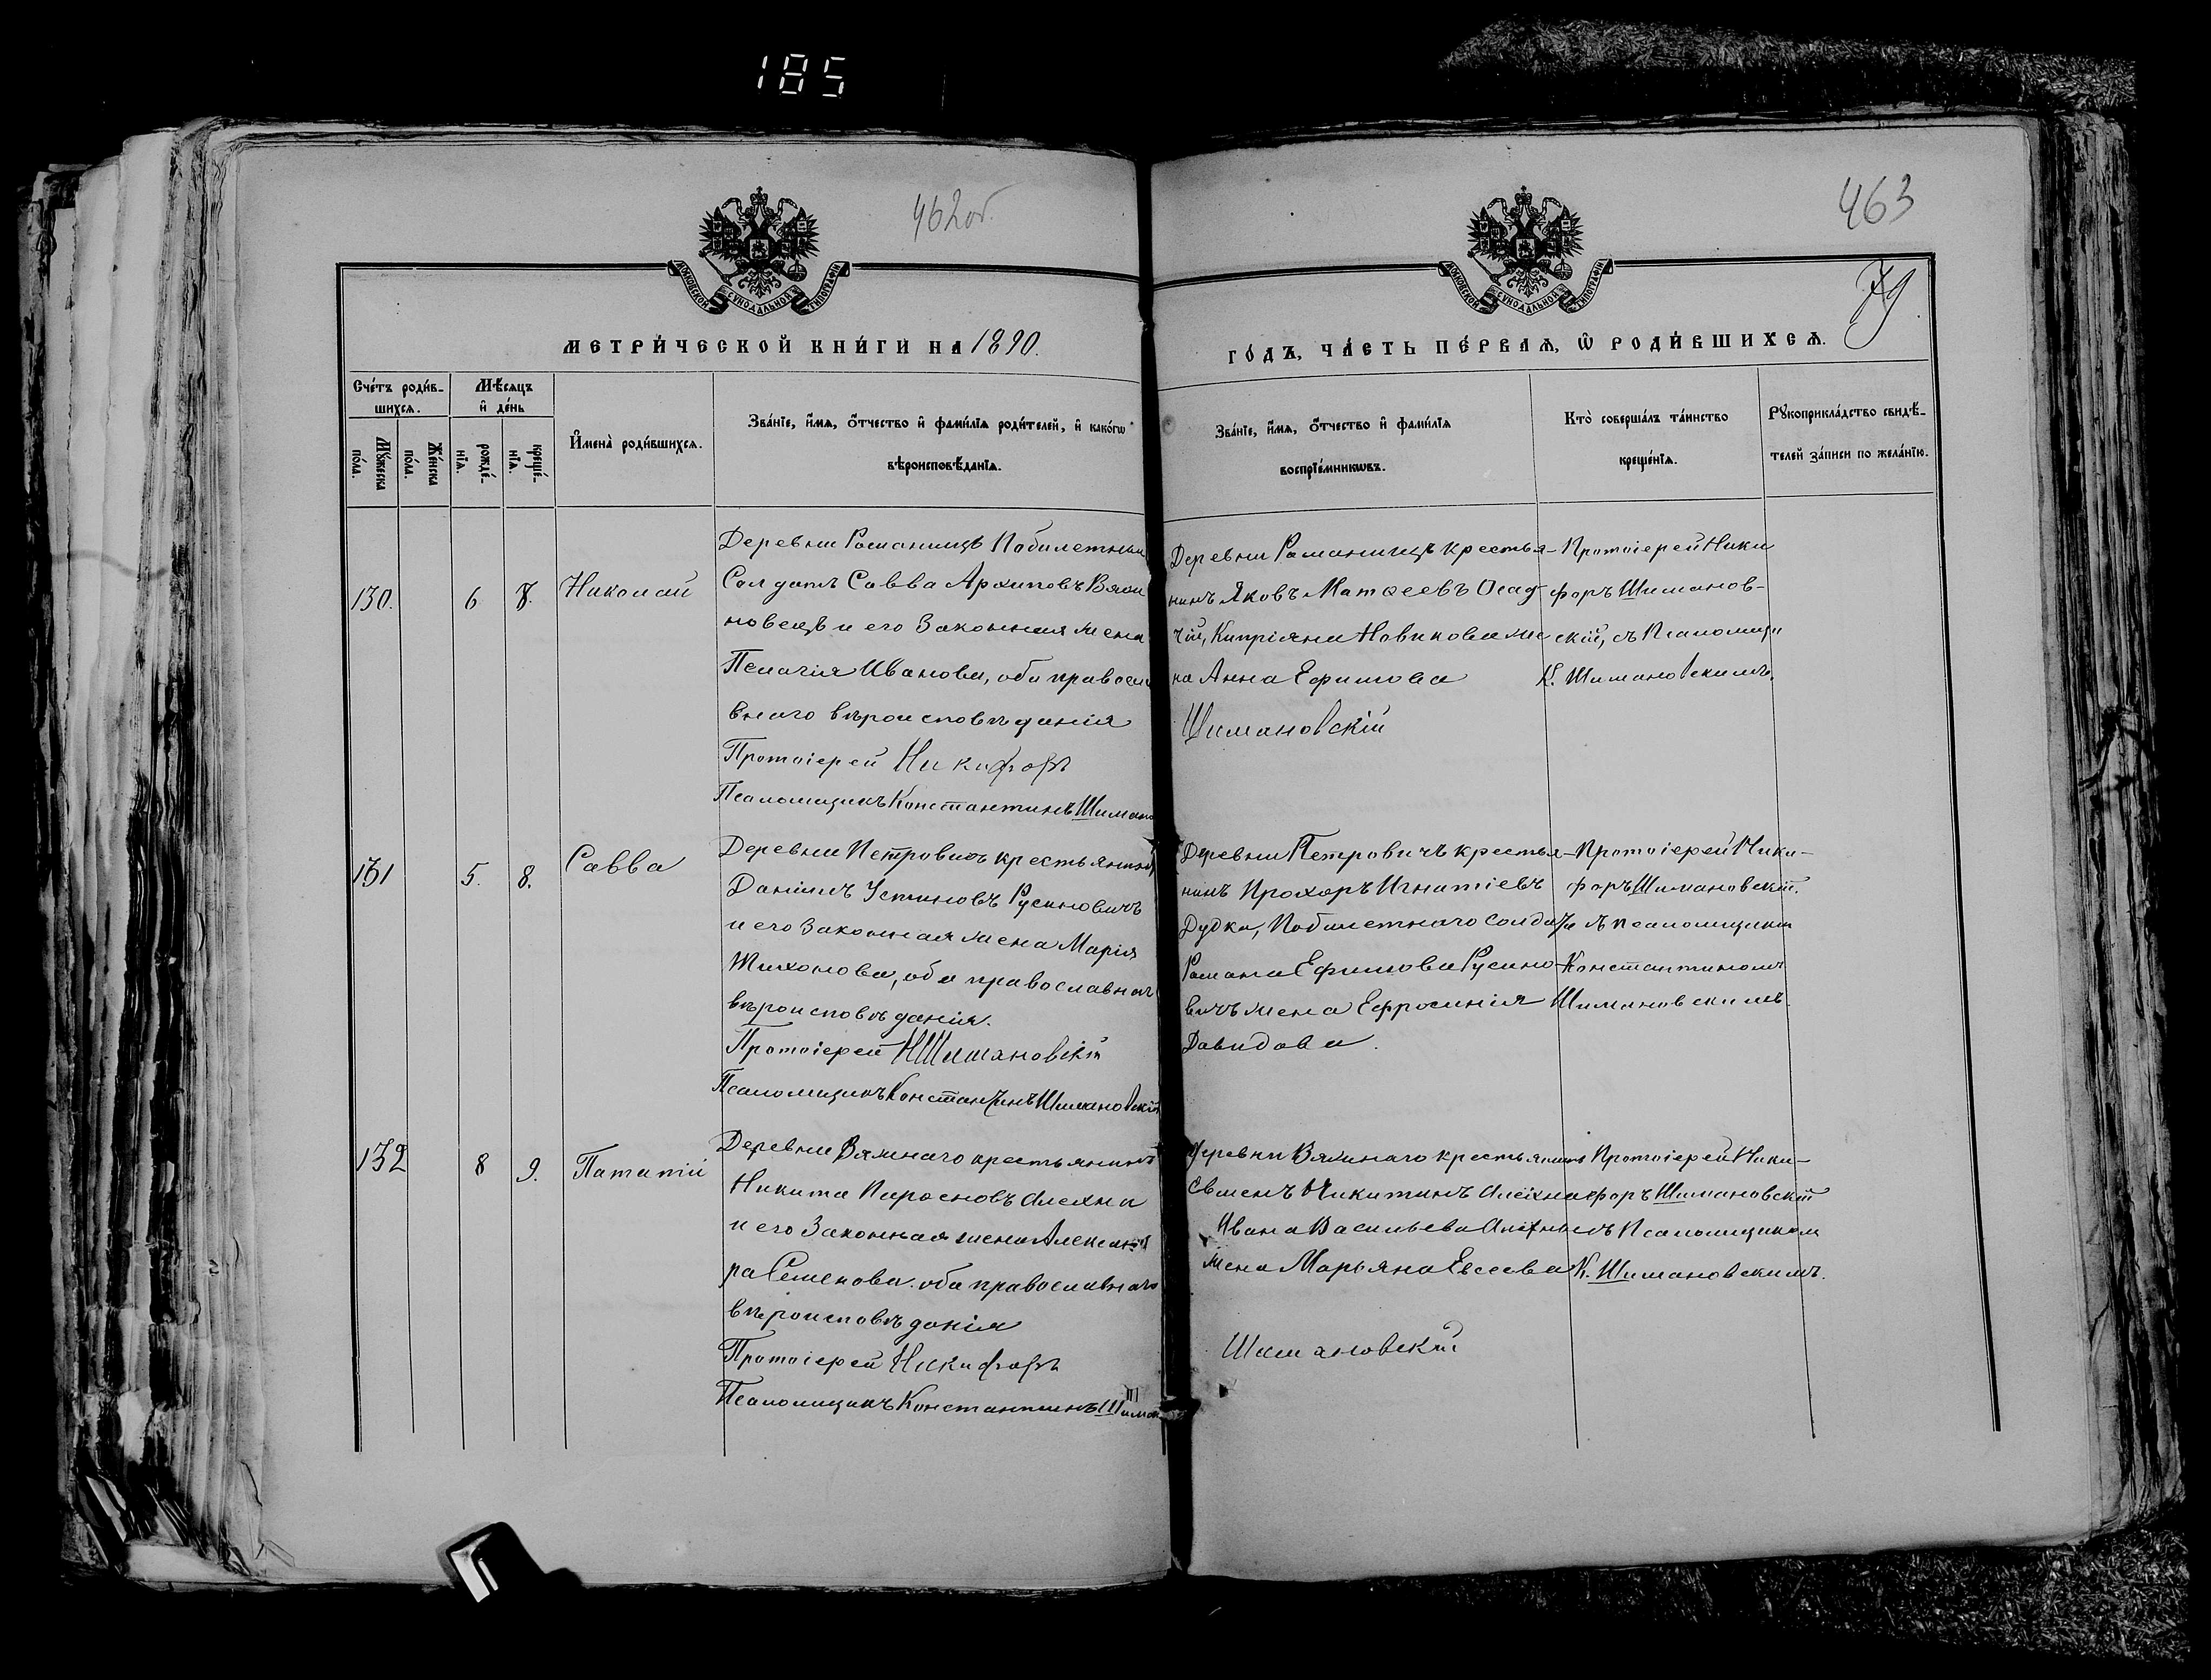 185
462об.
463
79
МОСКОВСКОЙ СУНОДАЛЬНОЙ ТИПОГРАФІИ
МОСКОВСКОЙ СУНОДАЛЬНОЙ ТИПОГРАФІИ
МЕТРИ́ЧЕСКОЙ КНИ́ГИ НА 1890.
ГО́ДЪ, ЧА́СТЬ ПЕ́РВАѦ, Ѽ РОДИ́ВШИХСѦ.
Сче́тъ роди́в-
шихсѧ.
Мꙋ́жеска
по́ла.
Же́нска
по́ла.
Мѣ́сѧцъ
и҆ де́нь
рожде́-
нїѧ.
креще́-
нїѧ.
И҆мена̀ роди́вшихсѧ.
Зва́нїе, и҆́мѧ, ѻ҆́тчество и҆ фами́лїѧ роди́телей, и҆ како́гѡ
вѣроисповѣ́данїѧ.
Зва́нїе, и҆́мѧ, ѻ҆́тчество и҆ фами́лїѧ
воспрїе́мникѡвъ.
Кто̀ соверша́лъ та́инство
креще́нїѧ.
Рꙋкоприкла́дство свидѣ́-
телей за́писи по жела́нїю.
130.
6
8.
Николай
Деревни Романищъ Побилетный
Солдатъ Савва Архиповъ
новецъ и его Законная жена
Пелагія Иванова, оба правосла
внаго вѣроисповѣданія
Протоіерей Никифоръ
Псаломщикъ Константинъ Шимано
Деревни Романищъ крестья-
нинъ Яковъ Матѳеевъ Осад-
чій, Кипріяна Новикова же
на Анна Ефимова
Шимановскій
Протоіерей Ники
форъ Шиманов-
скій, съ Псаломщи
К. Шимановскимъ.
131
5.
8.
Савва
Деревни Петровичъ крестьянинъ
Даніилъ Устиновъ Русиновичъ
и его Законная жена Марія
Тихонова, оба православнаг
вѣроисповѣданія.
Протоіерей НШимановскій
Псаломщикъ Константинъ Шимановскій
Деревни Петровичъ крестья-
нинъ Прохоръ Игнатіевъ
Дудка, Побилетнаго солдата
Романа Ефимова Русино-
вичъ жена Ефросинія
Давидова.
Протоіерей Ники-
форъ Шимановскій.
съ псаломщикомъ
Константиномъ
Шимановскимъ.
132
8
9.
Патапій
Деревни Вяжнаго крестьянинъ
Никита Парѳеновъ Алехна
и его Законная жена Алексан
ра Семенова. оба православнаго
вѣроисповѣданія
Протоіерей Никифоръ
Псаломщикъ Константинъ Шиман
Деревни Вяжнаго крестьянинъ
Никитинъ Алехна
Ивана Васильева
жена Марьяна Евсеева
Шимановскій
Протоіерей Ники-
форъ Шимановскій
съ Псаломщикомъ
К. Шимановскимъ.